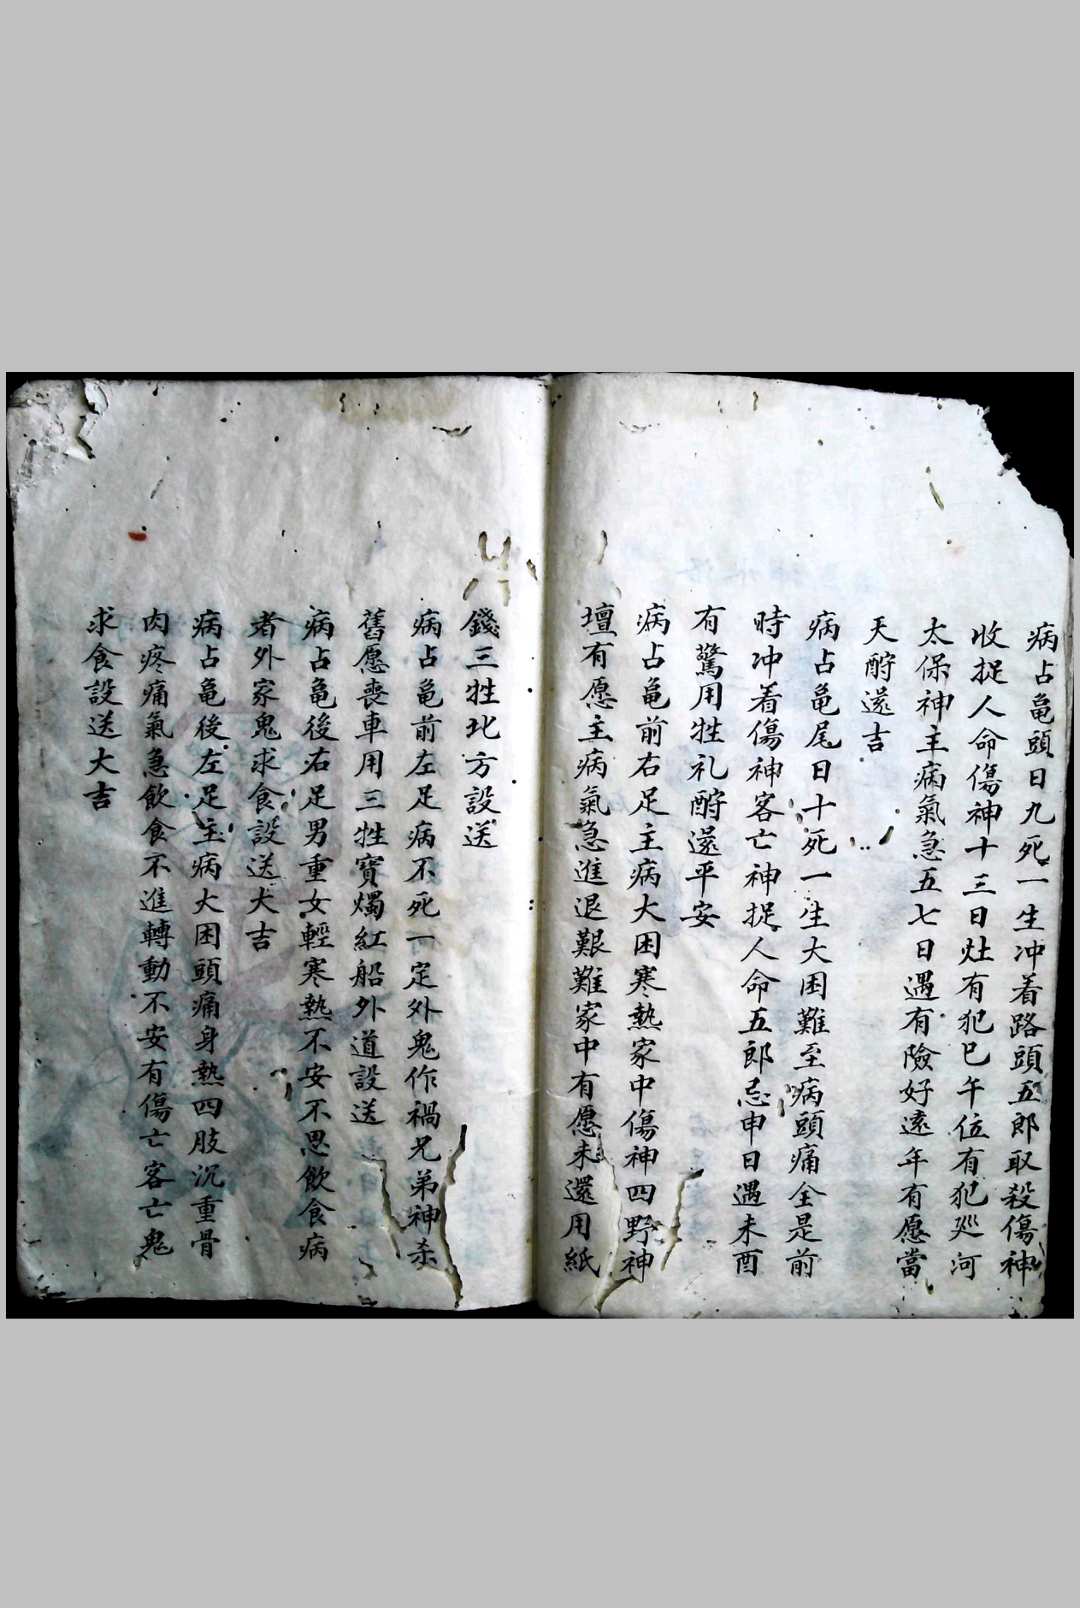 病占亀頭日九死一生冲着路頭五郎取殺傷神
收捉人命傷神十三日灶有犯巳午位有犯廵河
太保神主病氣急五七日遇有險好遠年有愿當
天酧還吉
病占亀尾日十死一生大困難至病頭痛全是前
時冲着傷神客亡神捉人命五郎忌申日遇未酉
有驚用牲礼酧還平安
病占亀前右足主病大困寒熱家中傷神四野神
壇有愿主病氣急進退艱難家中有愿未還用紙
錢三牲北方設送
病占亀前左足病不死一定外鬼作禍兄弟神杀
舊愿喪車用三牲寳燭紅船外道設送
病占亀後右足男重女輕寒熱不安不思飲食病
者外家鬼求食設送大吉
病占亀後左足主病大困頭痛身熱四肢沉重骨
肉疼痛氣急飲食不進轉動不安有傷亡客亡鬼
求食設送大吉